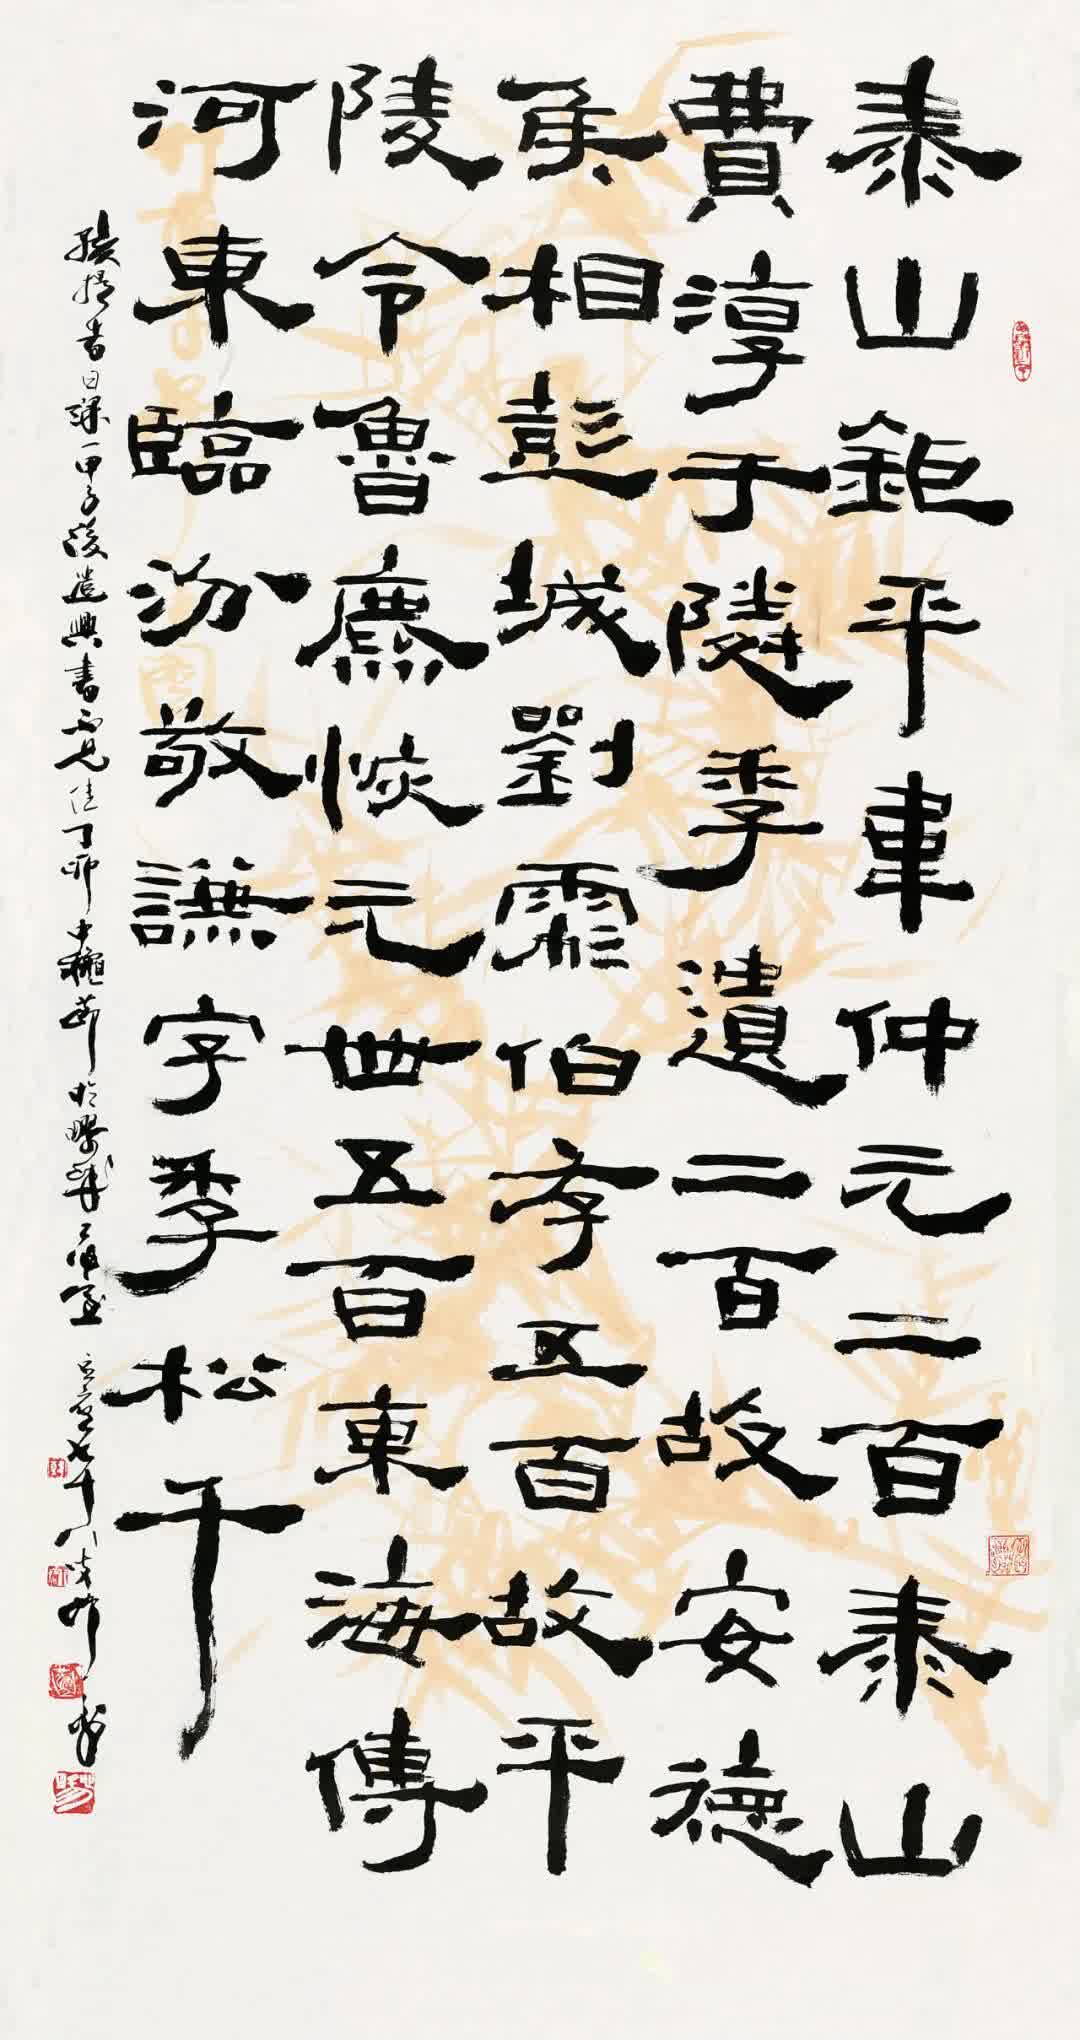 泰山鉅平韋仲元二百泰山
費淳于隣季遺二百故安德
矦相彭城劉彪伯存五百故平
陵令魯麃恢元世五百東海傳
河東臨汾敬謙字季松千
書日課一甲子後遣興書不見佳丁卯中龝節於
七十八